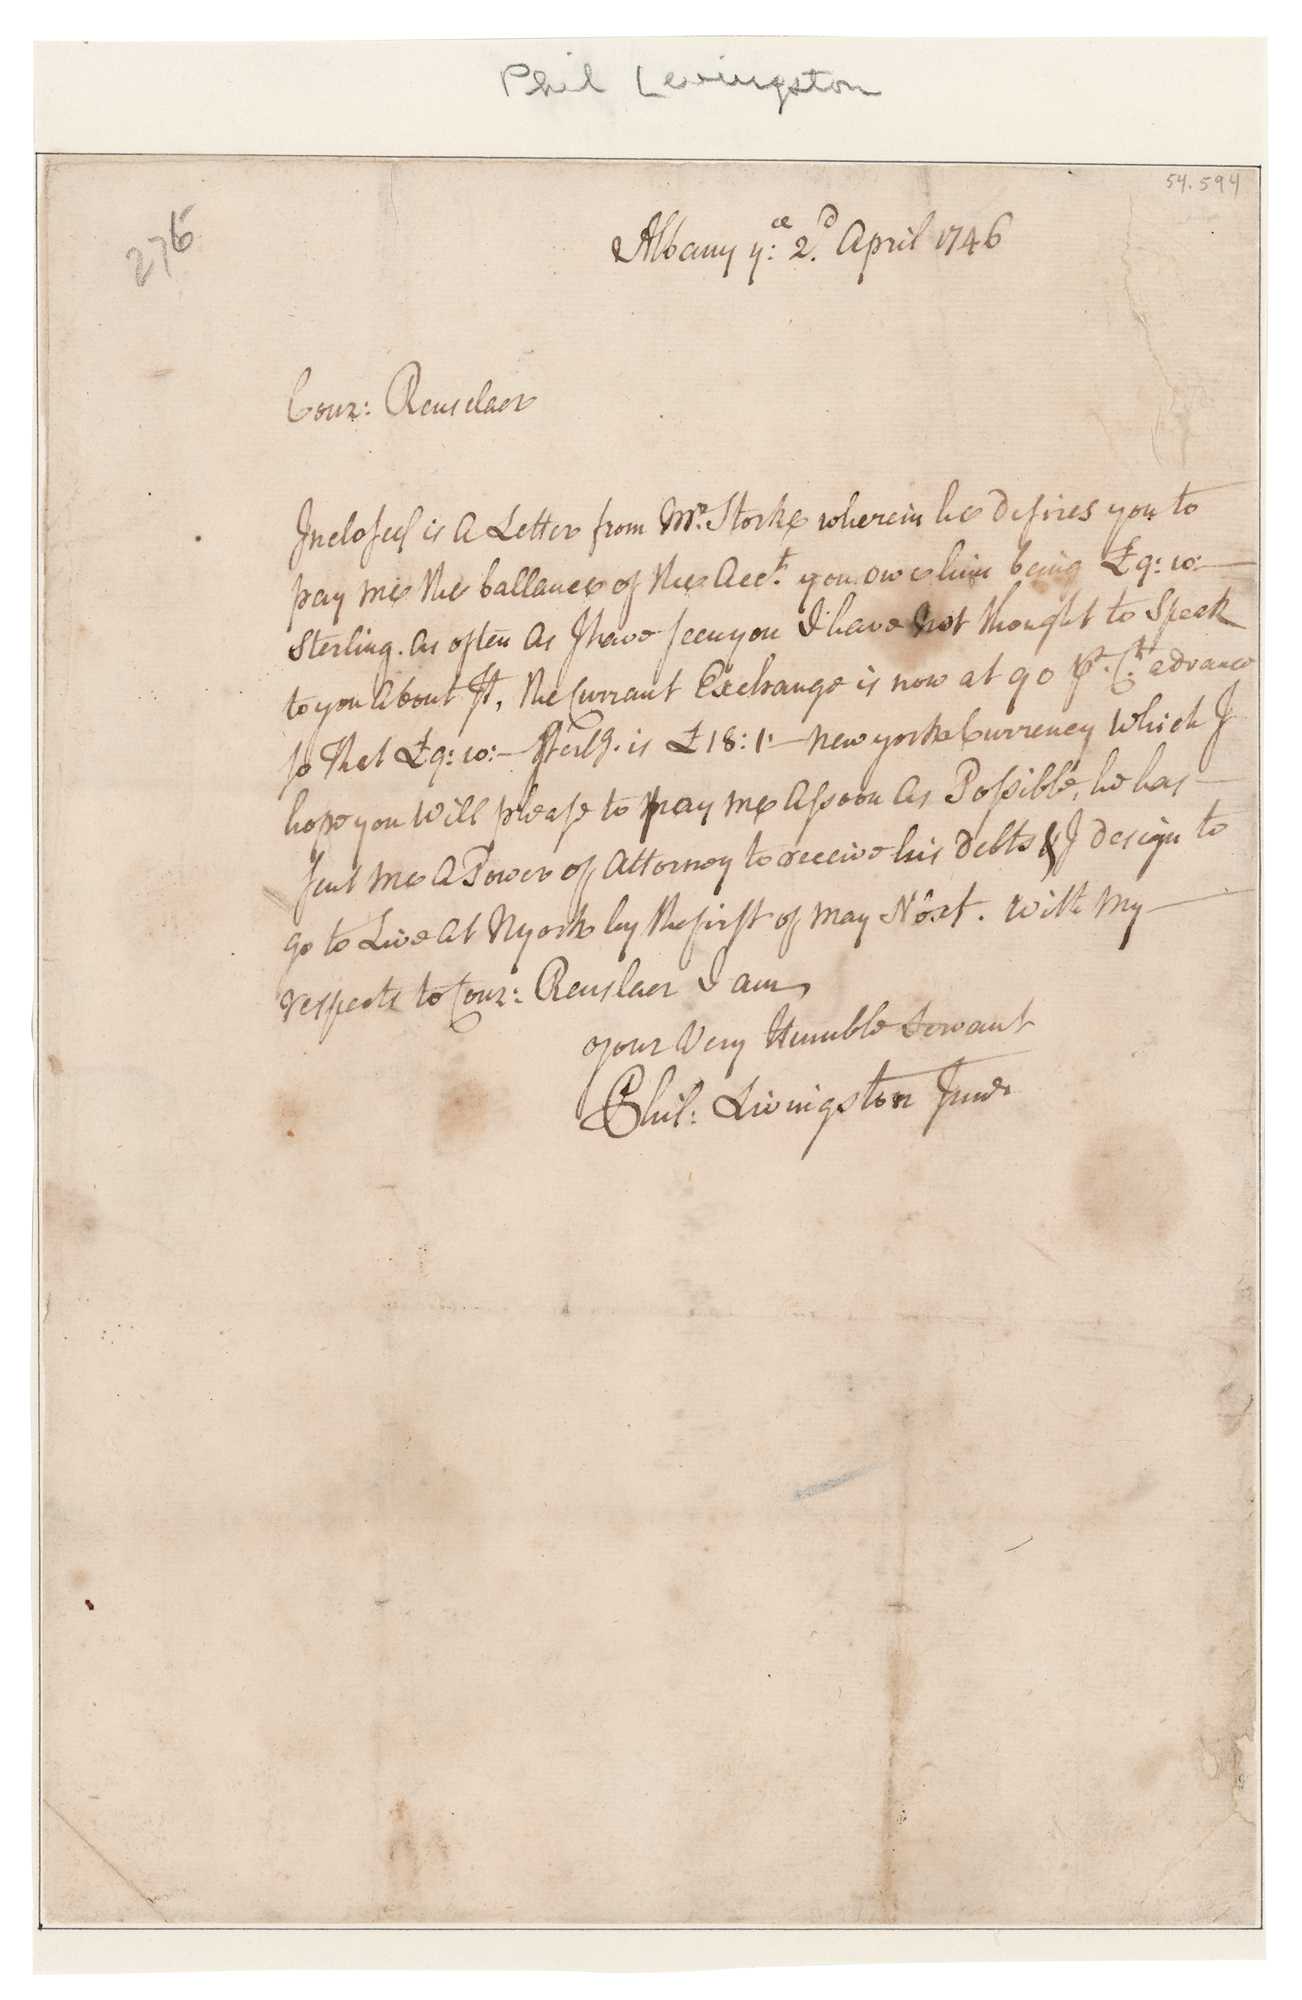 Phil Levingston
54.594
276
Albany ye: 2d. April 1746
Couz: Renselaer
Inclosed is A Letter from Mr. Storke wherein he desires you to
pay me the ballance of the Acct. you owe him being £9: 10:—
Sterling. As often As I have seen you I have not thought to Speak
to you About It, the Currant Exchange is now at 90 Pr. Ct. advance
so that £9: 10:— Sterlg. is £18: 1:— New york Currency which I
hope you will please to pay me Assoon As Possible, he has—
sent me A Power of Attorney to receive his debts & I design to
go to Live At Nyork by the first of may Next. With My—
respects to Couz: Renslaer I am
your Very Humble Servant
Phil: Livingston Junr